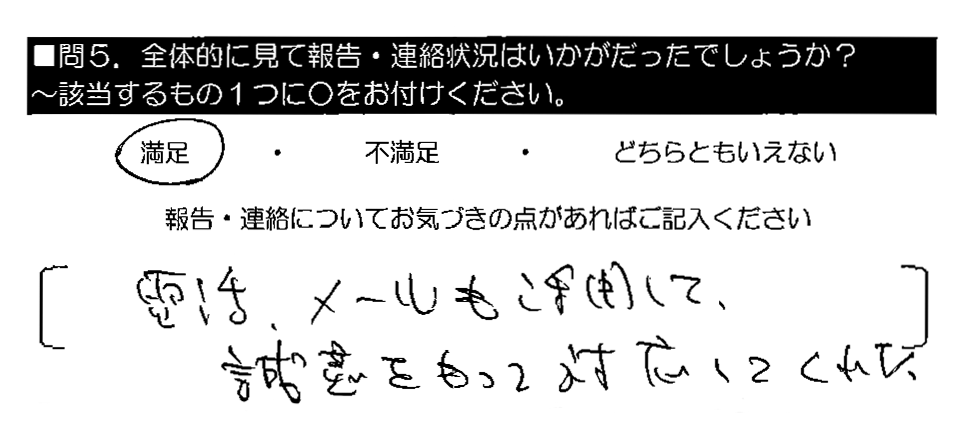 ■問5．全体的に見て報告・連絡状況はいかがだったでしょうか？
～該当するもの1つに○をお付けください。
満足 ・ 不満足 ・ どちらともいえない
報告・連絡についてお気づきの点があればご記入ください
電話、メールも活用して、
誠意をもって対応してくれた、